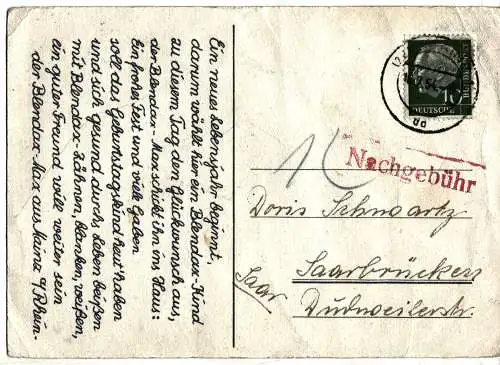 Ein neues Lebensjahr beginnt,
darum wählt hier ein Blendax-Kind
zu diesem Tag den Glückwunsch aus,
der Blendax-Max schickt ihn ins Haus:
Ein frohes Fest und viele Gaben
soll das Geburtstagskind heut' haben
und sich gesund durchs Leben beißen
mit Blendax-Zähnen, blanken, weißen,
ein guter Freund will weiter sein
der Blendax-Max aus Mainz a/Rhein.
DEUTSCHE
BUNDESPOST
Nachgebühr
Doris Schwartz
Saarbrücken
Saar
Dudweilerstr.